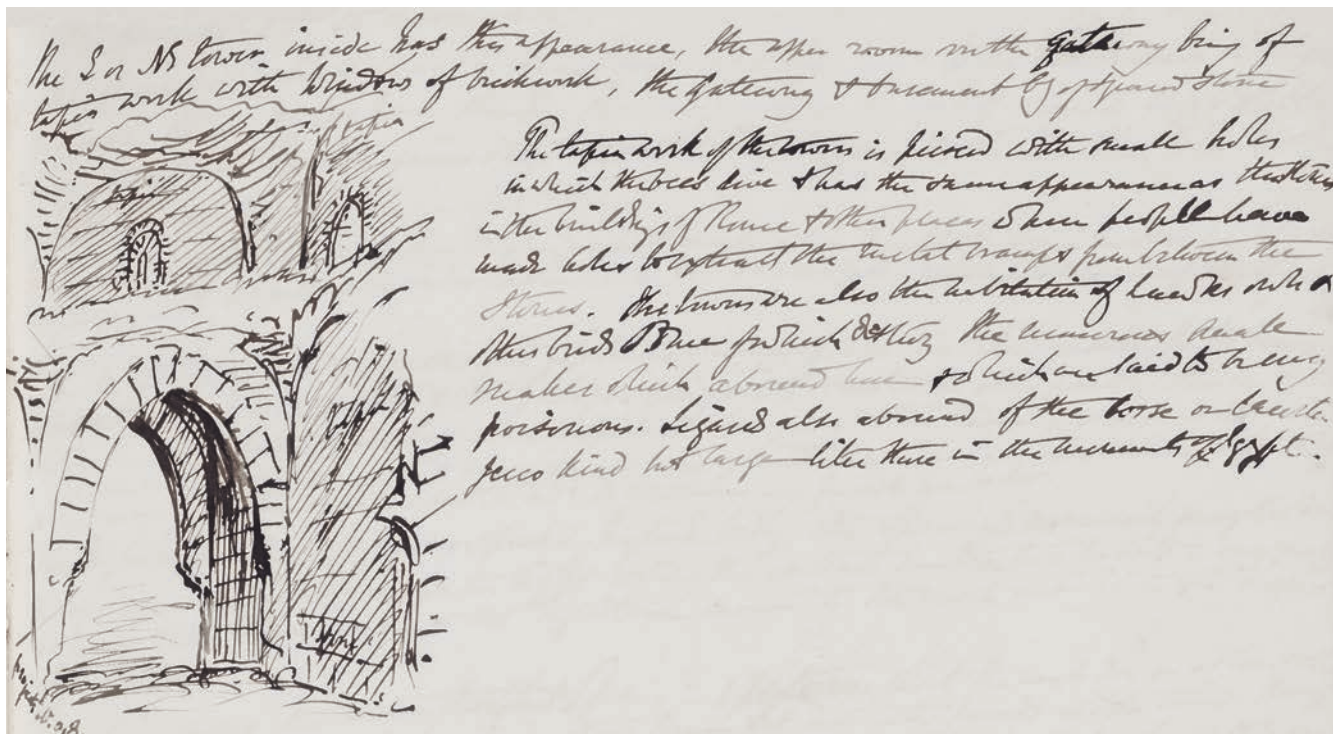 The S or N tower inside has this appearance, the upper room over the gateway being of
tapia work with windows of brickwork, the gateway & basement of squared stone
tapia
tapia
The tapia work of the towers is pierced with small holes
in which the bees live & has the same appearance as the stones
in the buildings of Rome & other places where people have
made holes to extract the metal cramps from between the
stones. The towers are also the habitation of hawks owls &
other birds some of which destroy the numerous small
snakes which abound here & which are said to be very
poisonous. Lizards also abound of the
kind but larger like those in the monuments of Egypt.
tapia
stone